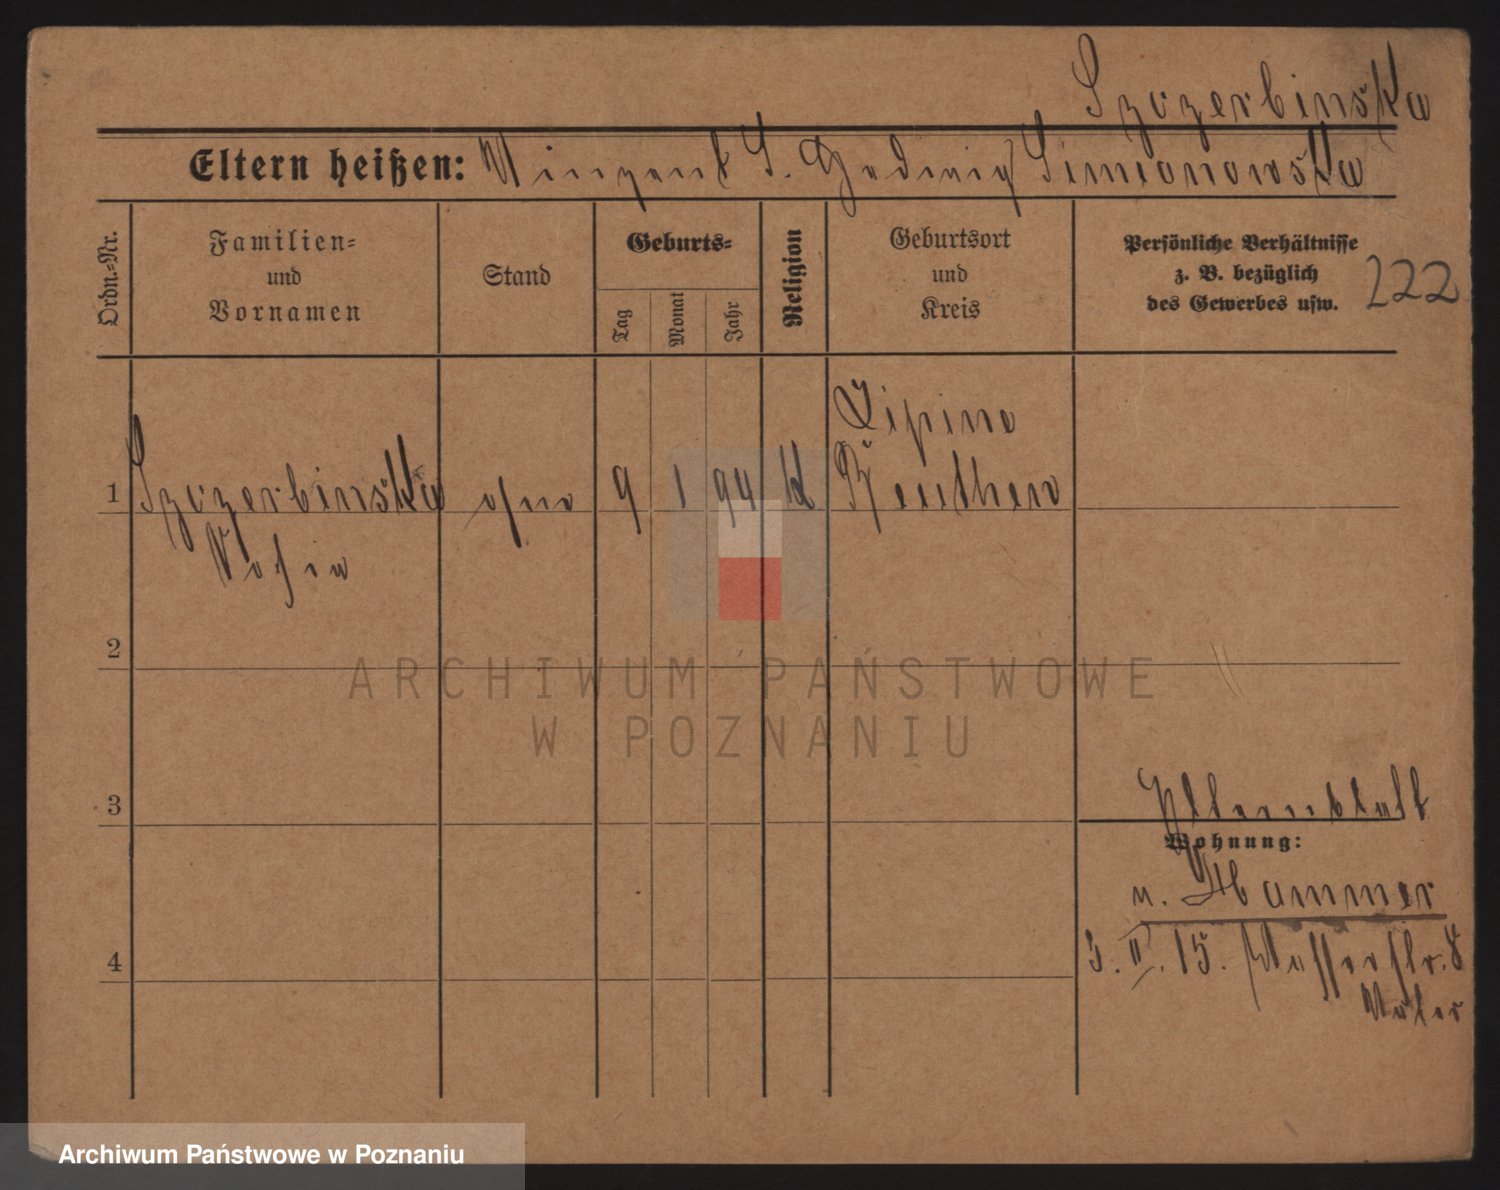 Szczerbinska
Eltern heißen: Vinzent S. Hedwig Simionowska
Ordn.=Nr.
Familien=
und
Vornamen
Stand
Geburts=
Tag
Monat
Jahr
Religion
Geburtsort
und
Kreis
Persönliche Verhältnisse
z. B. bezüglich
des Gewerbes usw.
222
1
Szczerbinska
Sofia
ohne
9
1
94
k
Lipine
Beuthen
2
3
4
Wohnung:
u. Hammer
3. II. 15. Wasserstr. 8
Vater
ARCHIWUM PAŃSTWOWE
W POZNANIU
Archiwum Państwowe w Poznaniu